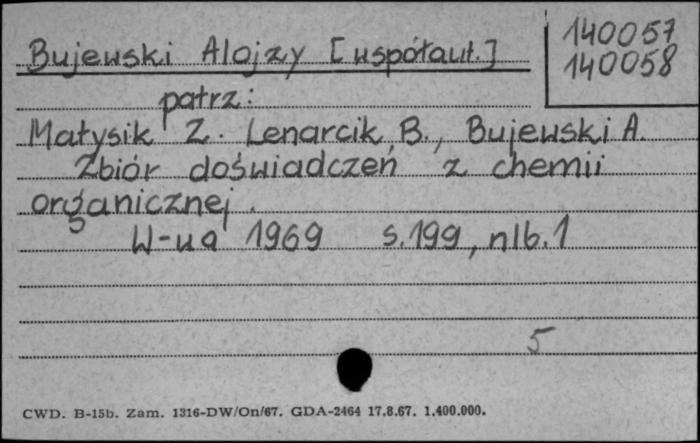 140057
140058
Bujewski Alojzy [współaut.]
patrz:
Małysik Z. Lenarcik, B., Bujewski A.
Zbiór doświadczeń z chemii
organicznej.
W-wa 1969 s.199, nlb.1
5
CWD. B-15b. Zam. 1316-DW/On/67. GDA-2464 17.8.67. 1.400.000.